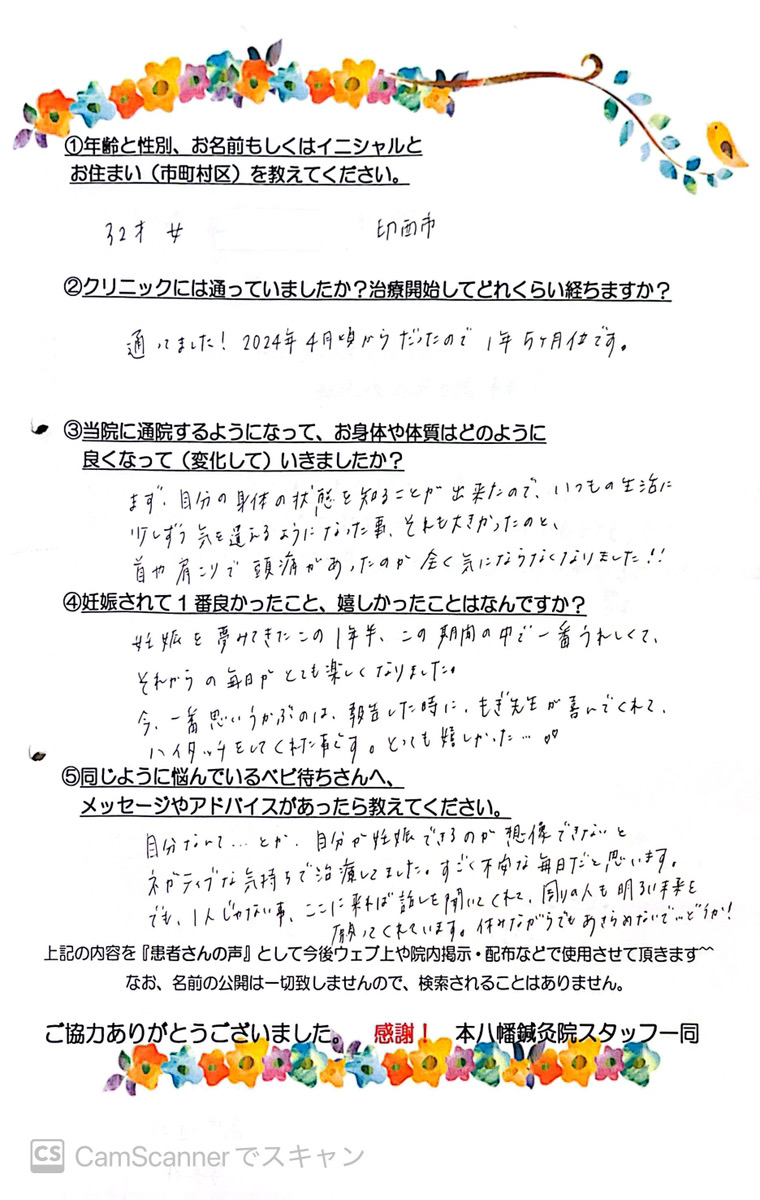 ①年齢と性別、お名前もしくはイニシャルと
お住まい（市町村区）を教えてください。
32才 女 印西市
②クリニックには通っていましたか？治療開始してどれくらい経ちますか？
通ってました！2024年4月頃からだったので1年5ヶ月位です。
③当院に通院するようになって、お身体や体質はどのように
良くなって（変化して）いきましたか？
まず、自分の身体の状態を知ることが出来たので、いつもの生活に
少しずつ気を遣えるようになった事、それも大きかったのと、
首や肩こりで頭痛があったのが全く気にならなくなりました！！
④妊娠されて1番良かったこと、嬉しかったことはなんですか？
妊娠を夢みてきたこの1年半、この期間の中で一番うれしくて、
それからの毎日がとても楽しくなりました。
今、一番思いうかぶのは、報告した時に、もぎ先生が喜んでくれて、
ハイタッチをしてくれた事です。とっても嬉しかった…♡♡
⑤同じように悩んでいるベビ待ちさんへ、
メッセージやアドバイスがあったら教えてください。
自分なんて…とか、自分が妊娠できるのが想像できないと
ネガティブな気持ちで治療してました。すごく不安な毎日だと思います。
でも、1人じゃない事、ここに来れば話しを聞いてくれて、周りの人も明るい未来を
願ってくれています。休みながらでもあきらめないで…どうか！
上記の内容を『患者さんの声』として今後ウェブ上や院内掲示・配布などで使用させて頂きます^^
なお、名前の公開は一切致しませんので、検索されることはありません。
ご協力ありがとうございました。 感謝！ 本八幡鍼灸院スタッフ一同
CS CamScannerでスキャン